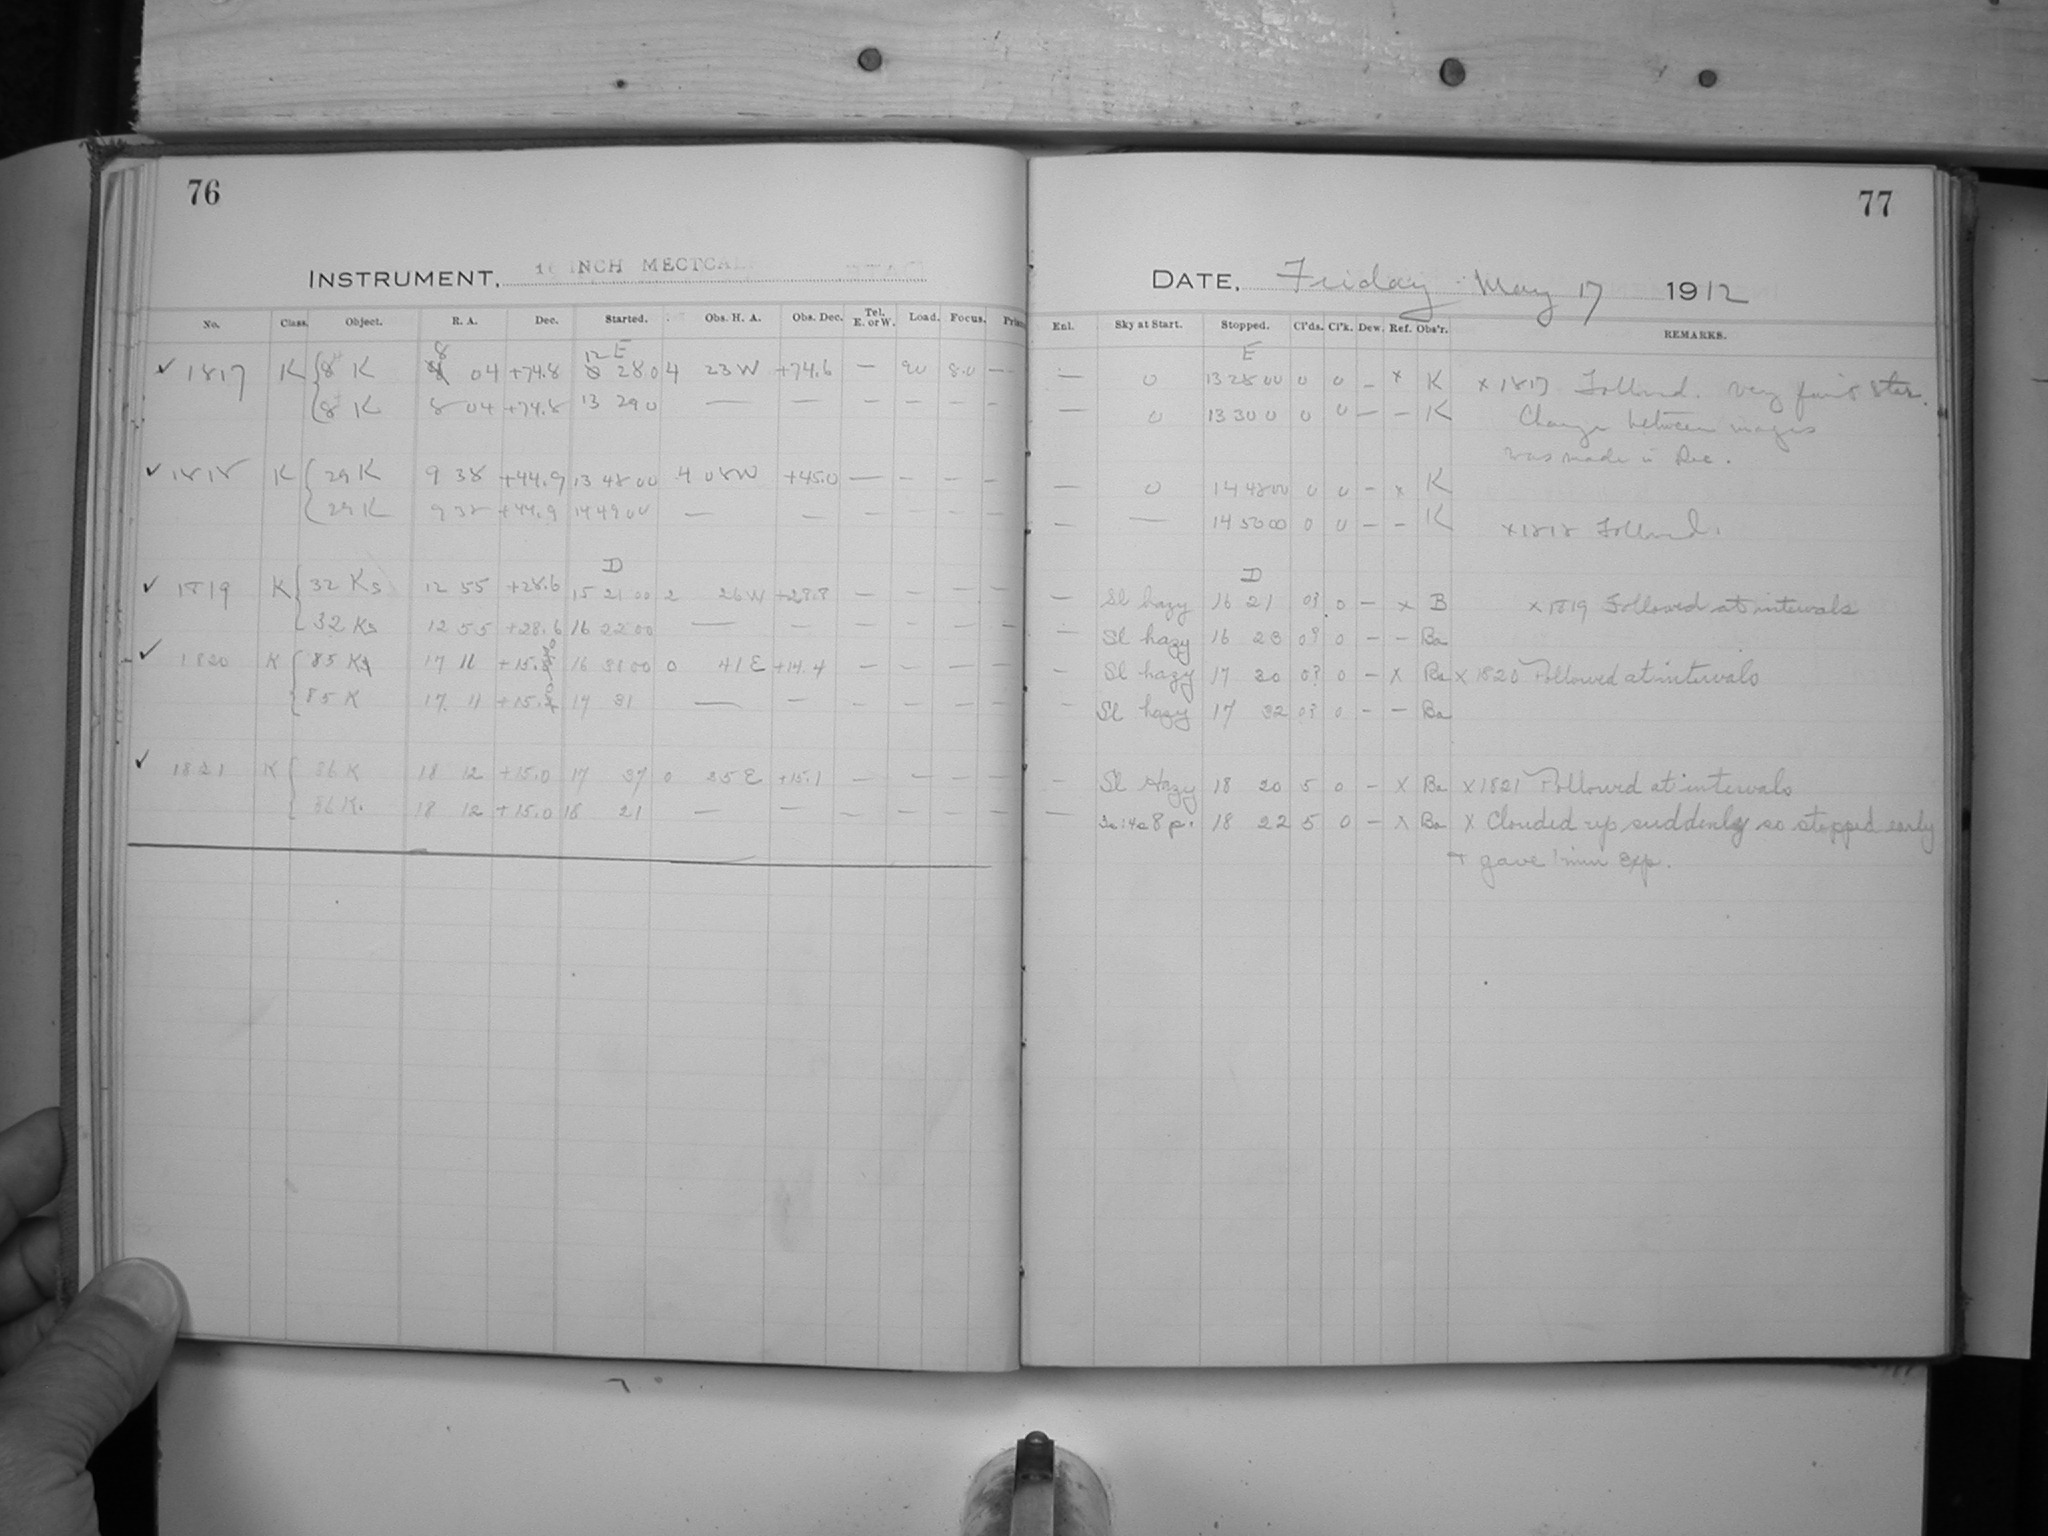 76
INSTRUMENT, 16 INCH METCALF
No. Class. Object. R. A. Dec. Started. Obs. H. A. Obs. Dec. Tel. E. or W. Load. Focus.
8 12 E
✓ 1817 K 8 K 04 +74.8 28 0 4 23 W +74.6 — 90 8.0 —
8 K 8 04 +74.8 13 29 0 — — — — — —
✓ 1818 K 29 K 9 38 +44.9 13 48 00 4 08 W +45.0 — — — —
29 K 9 38 +44.9 14 49 00 — — — — — —
D
✓ 1819 K 32 Ks 12 55 +28.6 15 21 00 2 26 W +28.8 — — — —
32 Ks 12 55 +28.6 16 22 00 — — — — — —
✓ 1820 K 85 K 17 11 +15. 16 31 00 0 41 E +14.4 — — — —
85 K 17 11 +15. 17 31 — — — — — —
✓ 1821 K 86 K 18 12 +15.0 17 37 0 35 E +15.1 — — — —
86 K. 18 12 +15.0 18 21 — — — — — —
77
DATE, Friday May 17 1912
Enl. Sky at Start. Stopped. Cl'ds. Cl'k. Dew. Ref. Obs'r. REMARKS.
E
— 0 13 28 00 0 0 – x K x 1817 Followed. Very faint star.
— 0 13 30 0 0 0 — – K Change between images
was made in Dec.
— 0 14 48 00 0 0 – x K
— — 14 50 00 0 0 – – K x 1818 Followed.
D
— Sl hazy 16 21 0? 0 – x B x 1819 Followed at intervals
— Sl hazy 16 23 0? 0 – – Ba
— Sl hazy 17 30 0? 0 – x Ba x 1820 Followed at intervals
— Sl hazy 17 32 0? 0 – – Ba
— Sl Hazy 18 20 5 0 – x Ba x 1821 Followed at intervals
— 18 22 5 0 – x Ba x Clouded up suddenly so stopped early
+ gave 1 min exp.